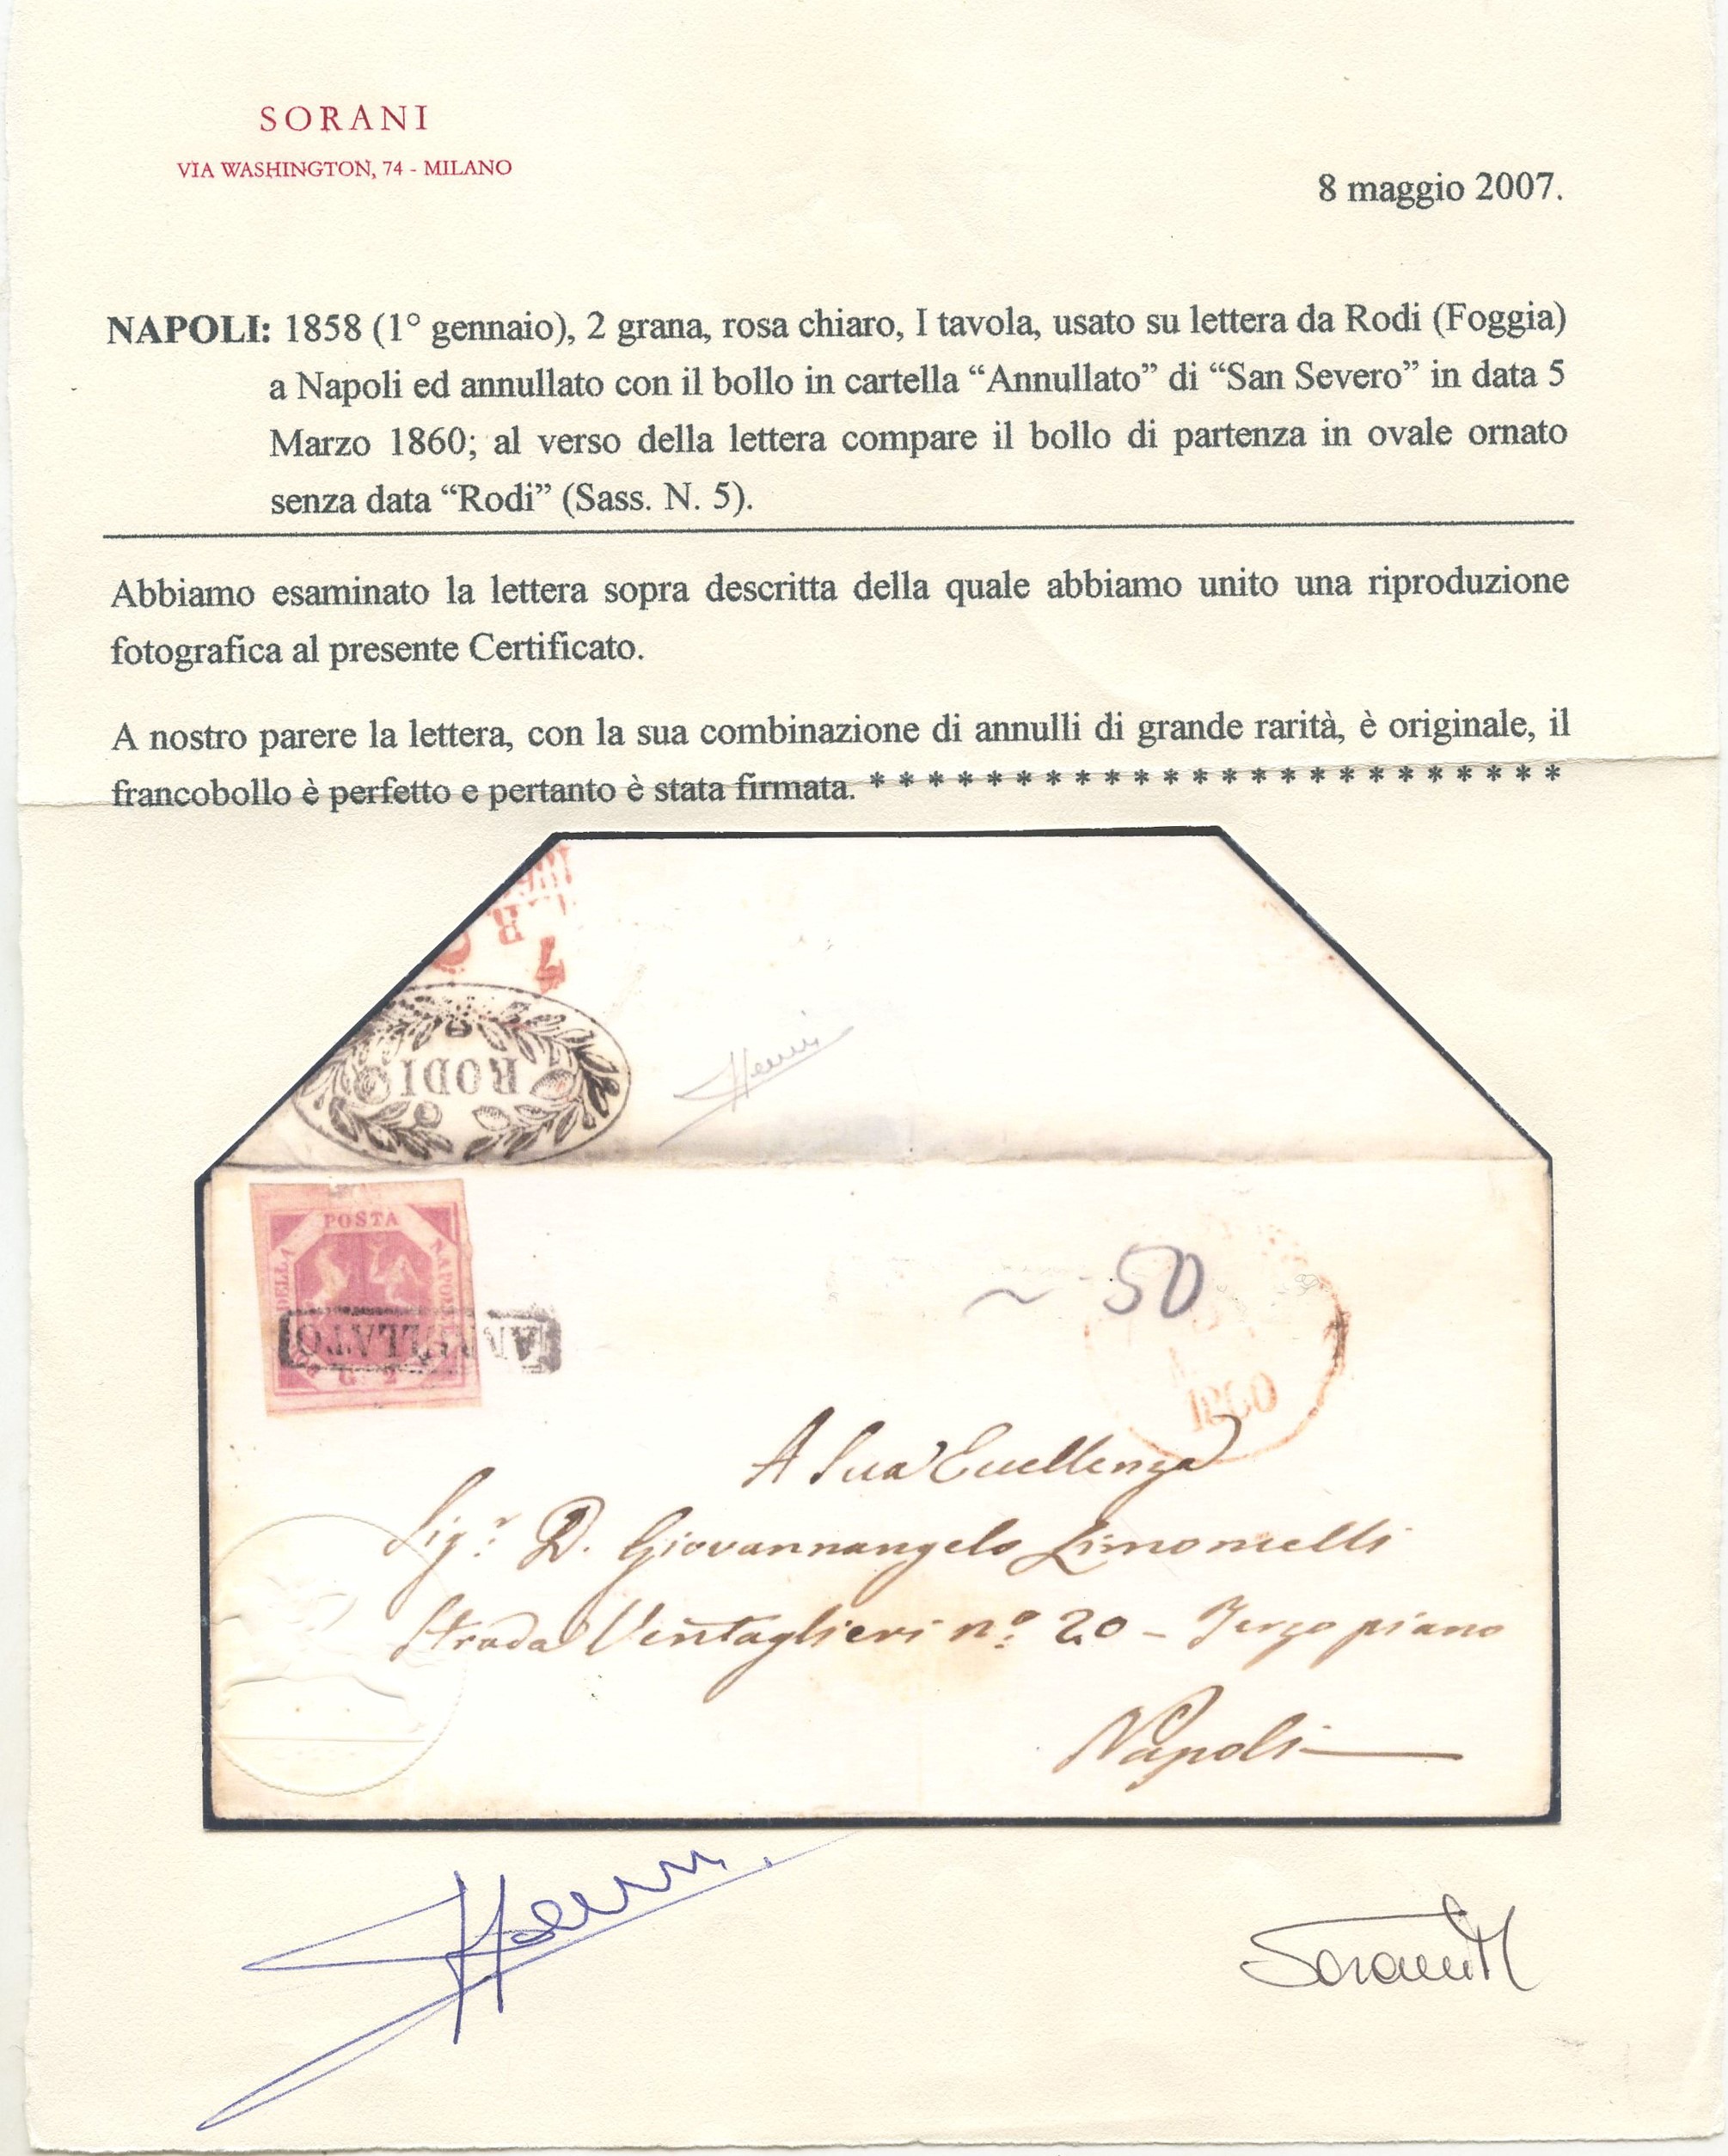 SORANI
VIA WASHINGTON, 74 - MILANO
8 maggio 2007.
NAPOLI: 1858 (1° gennaio), 2 grana, rosa chiaro, I tavola, usato su lettera da Rodi (Foggia)
a Napoli ed annullato con il bollo in cartella “Annullato” di “San Severo” in data 5
Marzo 1860; al verso della lettera compare il bollo di partenza in ovale ornato
senza data “Rodi” (Sass. N. 5).
Abbiamo esaminato la lettera sopra descritta della quale abbiamo unito una riproduzione
fotografica al presente Certificato.
A nostro parere la lettera, con la sua combinazione di annulli di grande rarità, è originale, il
francobollo è perfetto e pertanto è stata firmata. * * * * * * * * * * * * * * * * * * * * * * * *
RODI
POSTA
DELLA
NAPOLE
ANNULLATO
G 2
~ 50
1860
A Sua Eccellenza
Sigr. D. Giovannangelo Limoncelli
Strada Ventaglieri no. 20 - Terzo piano
Napoli